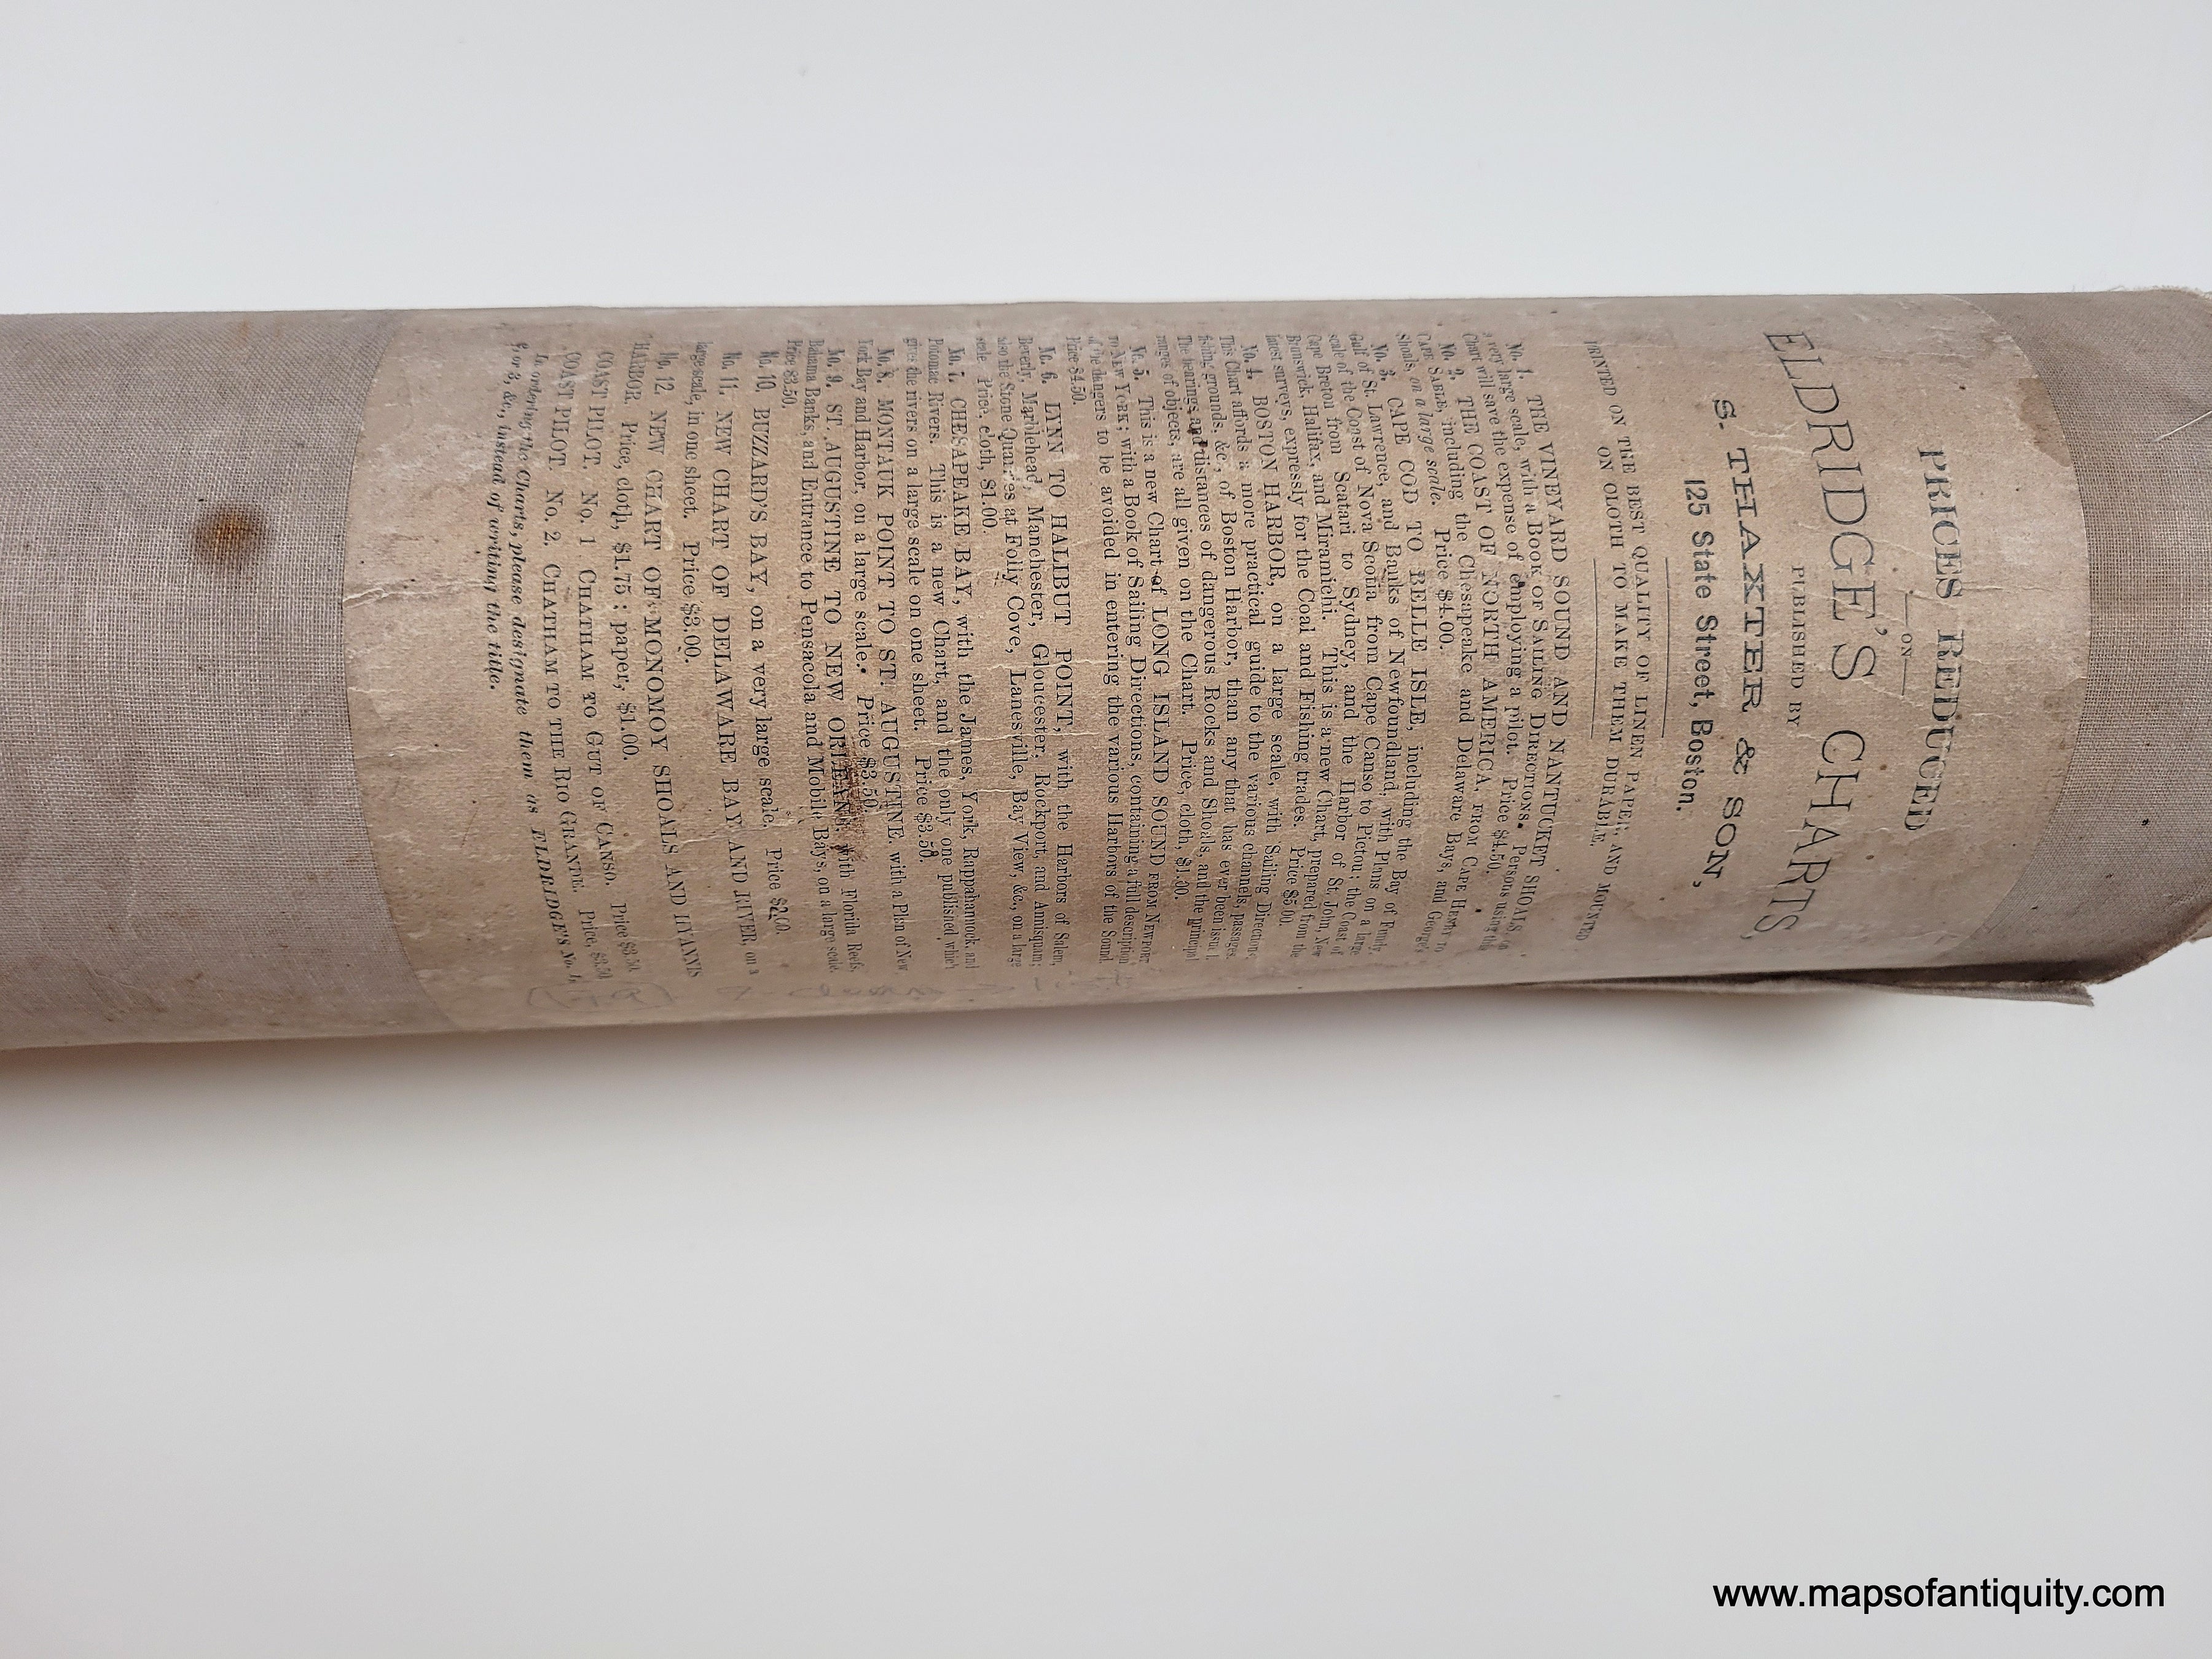 PRICES REDUCED
ON
ELDRIDGE'S CHARTS,
PUBLISHED BY
S. THAXTER & SON,
125 State Street, Boston.
PRINTED ON THE BEST QUALITY OF LINEN PAPER, AND MOUNTED
ON CLOTH TO MAKE THEM DURABLE.
No. 1. THE VINEYARD SOUND AND NANTUCKET SHOALS, on
a very large scale, with a Book of Sailing Directions. Persons using this
Chart will save the expense of employing a pilot. Price $4.50.
No. 2. THE COAST OF NORTH AMERICA, from Cape Henry to
Cape Sable, including the Chesapeake and Delaware Bays, and George's
Shoals, on a large scale. Price $4.00.
No. 3. CAPE COD TO BELLE ISLE, including the Bay of Fundy,
Gulf of St. Lawrence, and Banks of Newfoundland, with Plans on a large
scale of the Coast of Nova Scotia from Cape Canso to Pictou; the Coast of
Cape Breton from Scatari to Sydney, and the Harbor of St. John, New
Brunswick, Halifax, and Miramichi. This is a new Chart, prepared from the
latest surveys, expressly for the Coal and Fishing trades. Price $5.00.
No. 4. BOSTON HARBOR, on a large scale, with Sailing Directions.
This Chart affords a more practical guide to the various channels, passages,
fishing grounds, &c., of Boston Harbor, than any that has ever been issued.
The bearings and distances of dangerous Rocks and Shoals, and the principal
ranges of objects, are all given on the Chart. Price, cloth, $1.00.
No. 5. This is a new Chart of LONG ISLAND SOUND from Newport
to New York; with a Book of Sailing Directions, containing a full description
of the dangers to be avoided in entering the various Harbors of the Sound.
Price $4.50.
No. 6. LYNN TO HALIBUT POINT, with the Harbors of Salem,
Beverly, Marblehead, Manchester, Gloucester, Rockport, and Annisquam;
also the Stone Quarries at Folly Cove, Lanesville, Bay View, &c., on a large
scale. Price, cloth, $1.00.
No. 7. CHESAPEAKE BAY, with the James, York, Rappahannock, and
Potomac Rivers. This is a new Chart, and the only one published which
gives the rivers on a large scale on one sheet. Price $3.50.
No. 8. MONTAUK POINT TO ST. AUGUSTINE, with a Plan of New
York Bay and Harbor, on a large scale. Price $3.50.
No. 9. ST. AUGUSTINE TO NEW ORLEANS, with Florida Reefs,
Bahama Banks, and Entrance to Pensacola and Mobile Bays, on a large scale.
Price $3.50.
No. 10. BUZZARD'S BAY, on a very large scale. Price $2.00.
No. 11. NEW CHART OF DELAWARE BAY AND RIVER, on a
large scale, in one sheet. Price $3.00.
No. 12. NEW CHART OF MONOMOY SHOALS AND HYANNIS
HARBOR. Price, cloth, $1.75; paper, $1.00.
COAST PILOT. No. 1 Chatham to Gut of Canso. Price $3.50.
COAST PILOT. No. 2. Chatham to the Rio Grande. Price, $3.50
In ordering the Charts, please designate them as ELDRIDGE'S No. 1,
2, or 3, &c., instead of writing the title.
www.mapsofantiquity.com